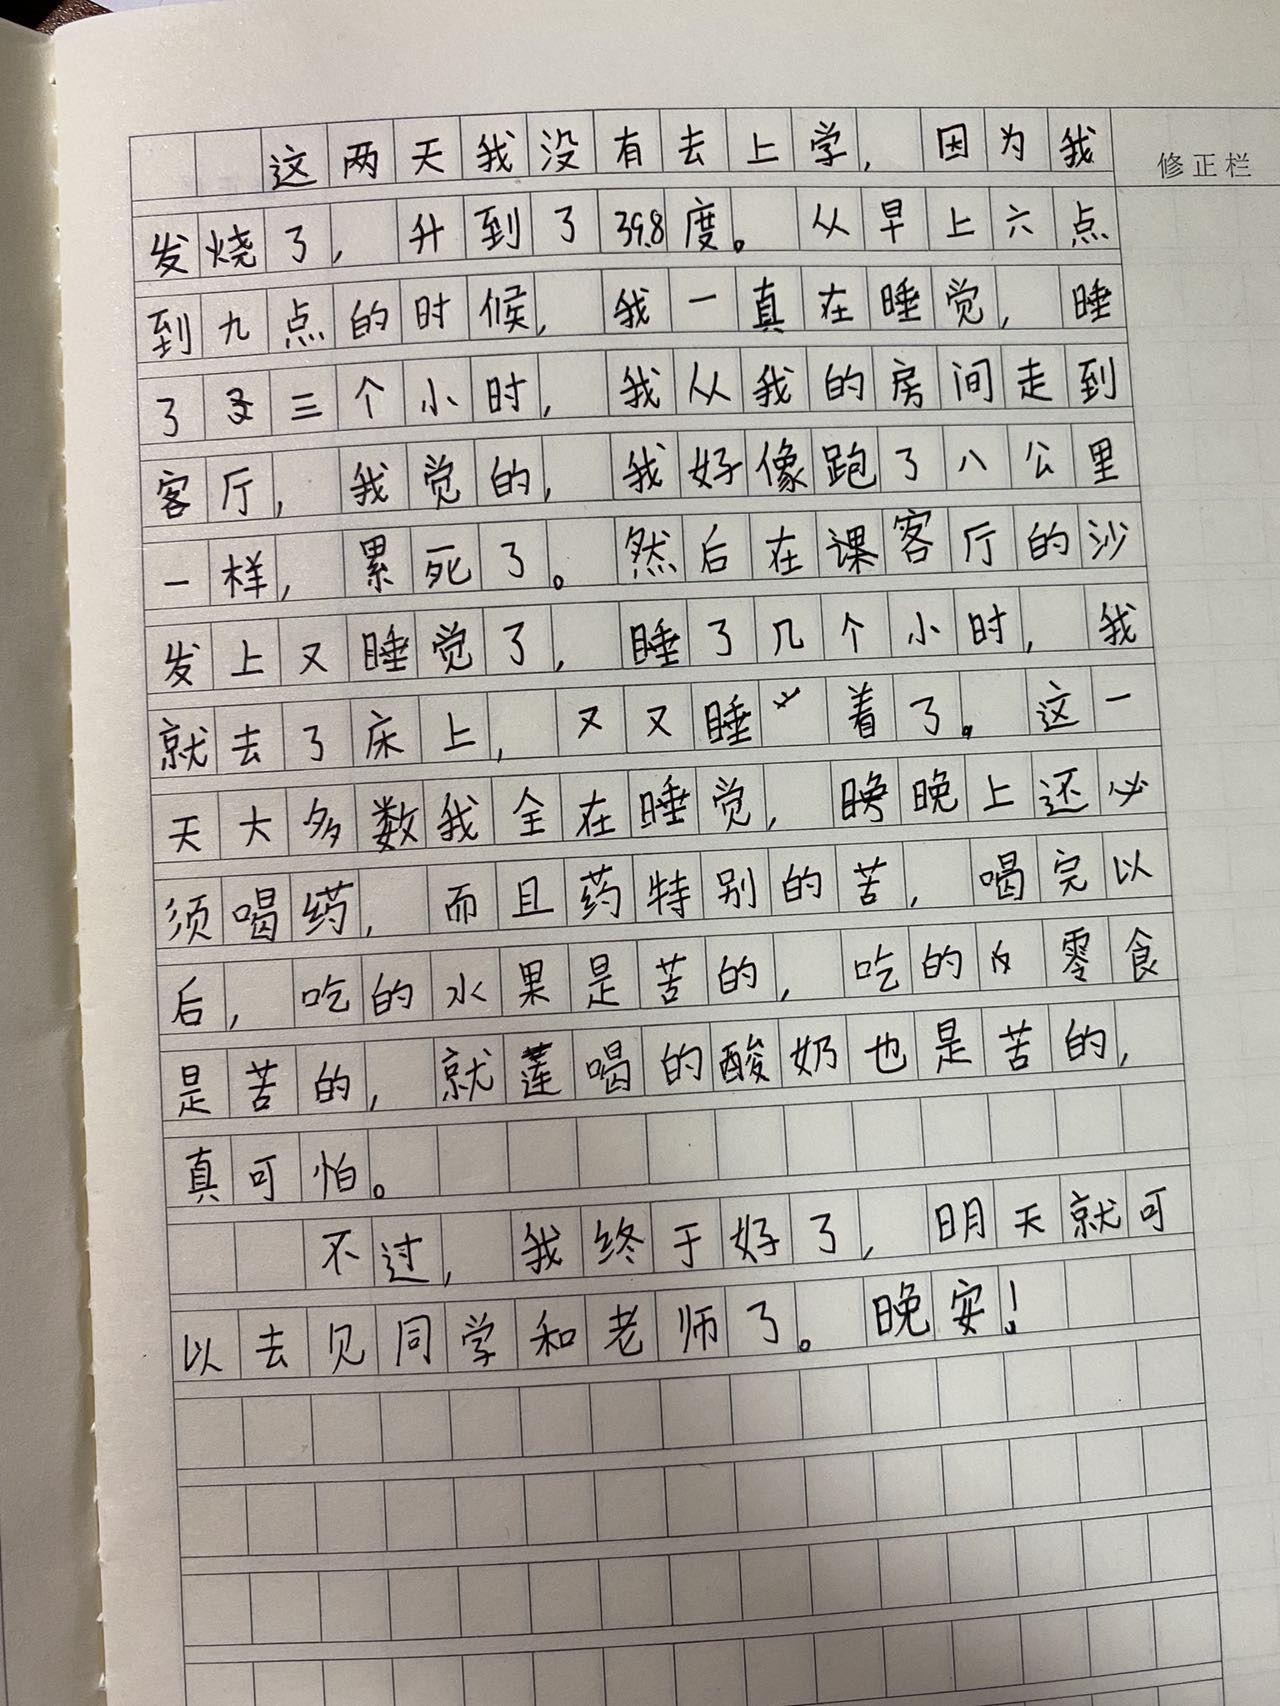 修正栏
这两天我没有去上学，因为我
发烧了，升到了39.8度。从早上六点
到九点的时候，我一真在睡觉，睡
了三个小时，我从我的房间走到
客厅，我觉的，我好像跑了八公里
一样，累死了。然后在课客厅的沙
发上又睡觉了，睡了几个小时，我
就去了床上，又又睡着了。这一
天大多数我全在睡觉，晚晚上还必
须喝药，而且药特别的苦，喝完以
后，吃的水果是苦的，吃的零食
是苦的，就莲喝的酸奶也是苦的，
真可怕。
不过，我终于好了，明天就可
以去见同学和老师了。晚安！